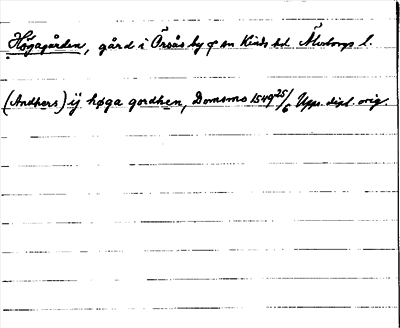 Högagården, gård i Örsås by o sn Kinds hd Älvsborgs l.
(Andhers) ij høga gordhen, Domsmo 1549 25/6 Upps. dipl. orig.